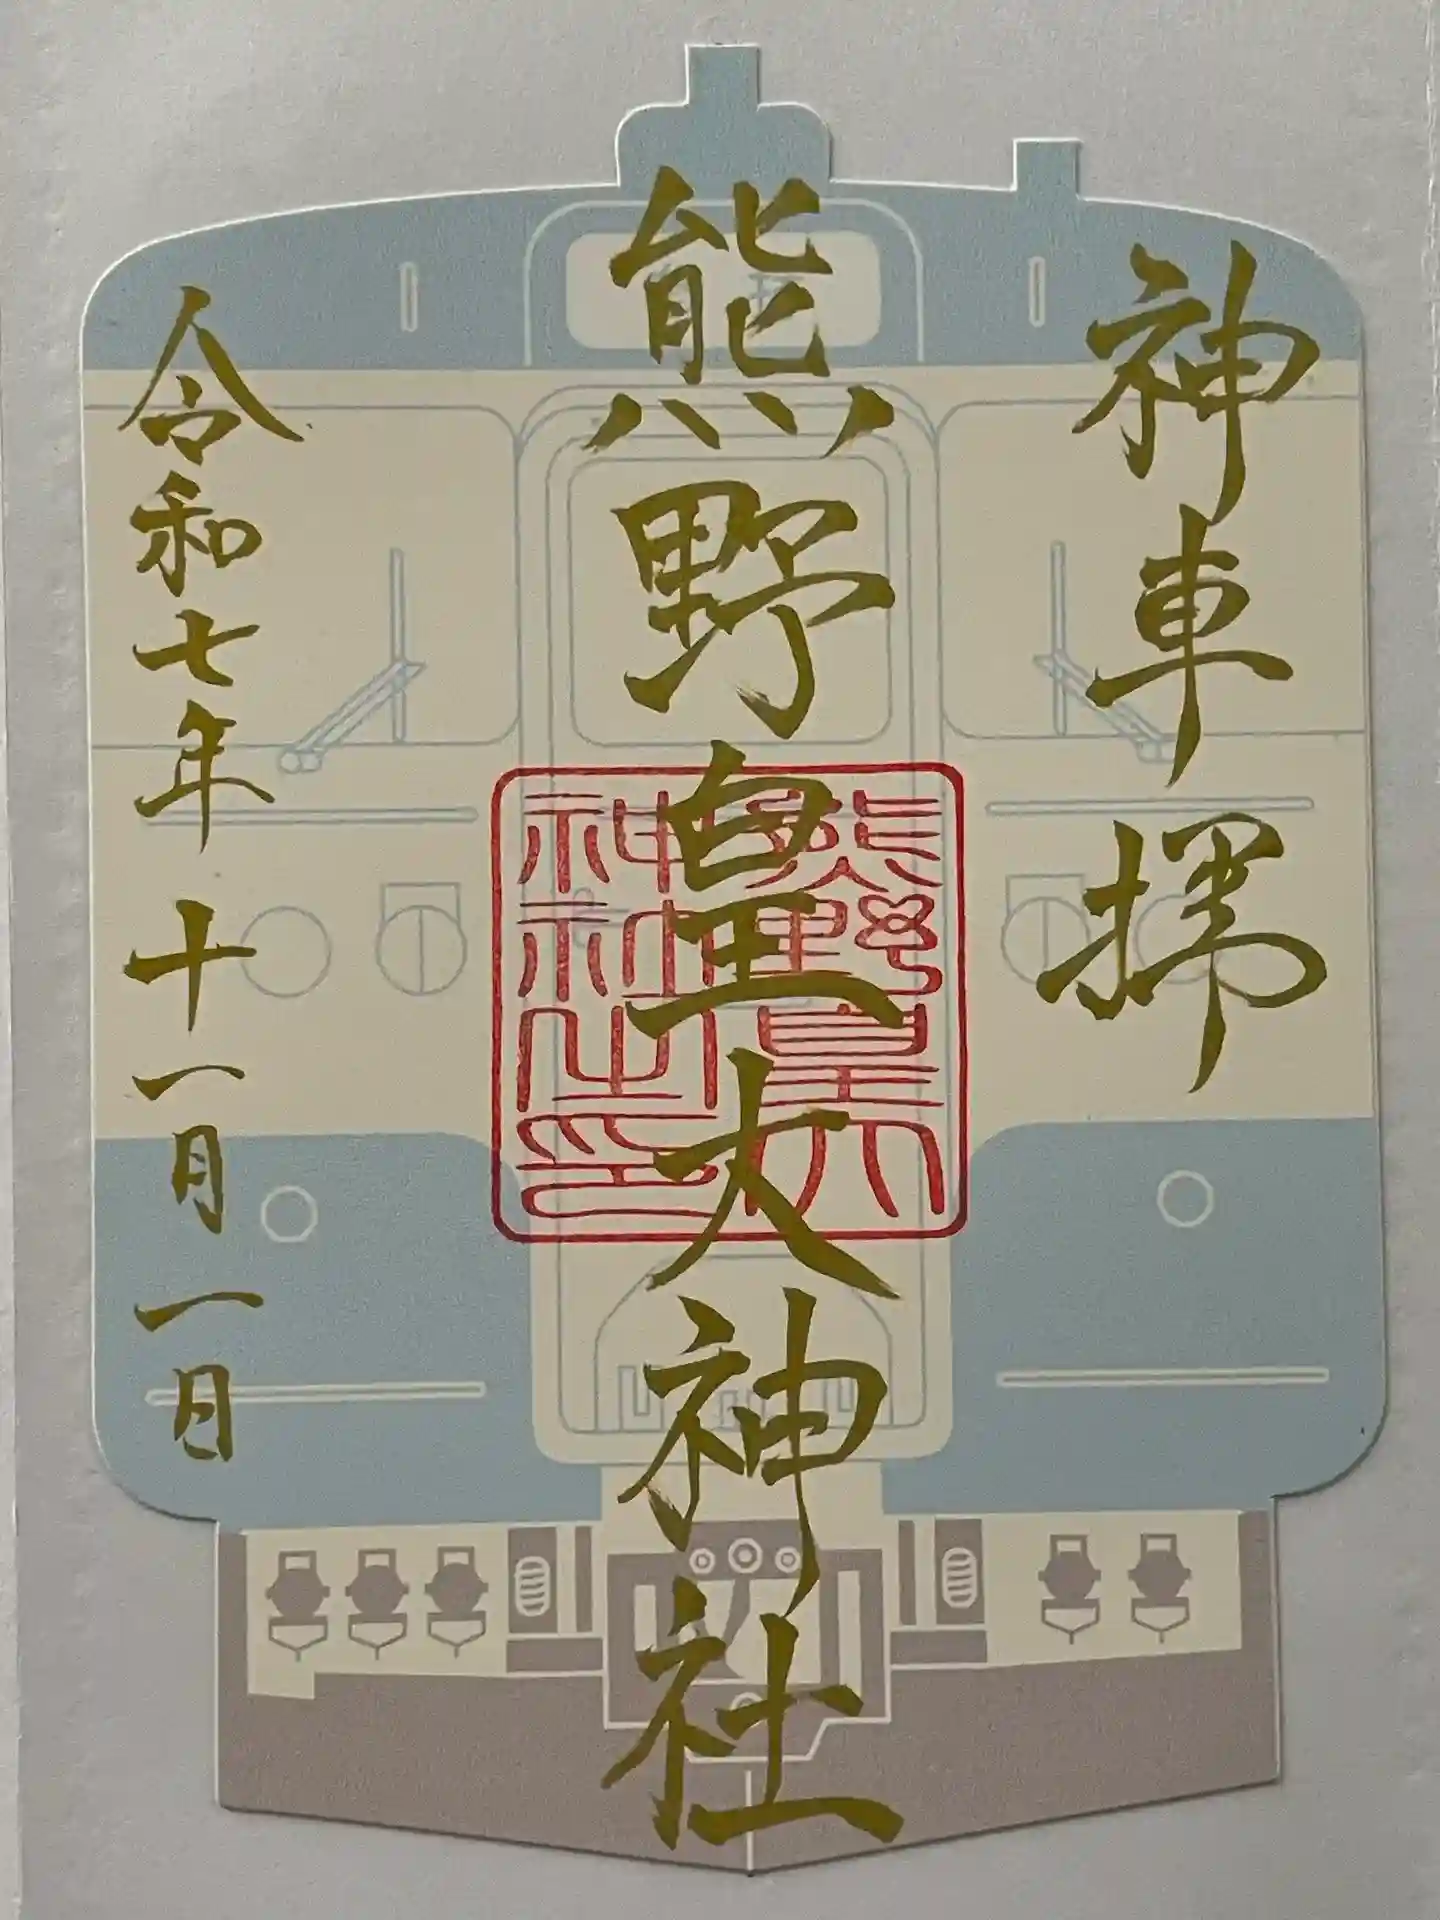 神車掃
熊野皇大神社
令和七年十一月一日
熊野皇大
神社之印